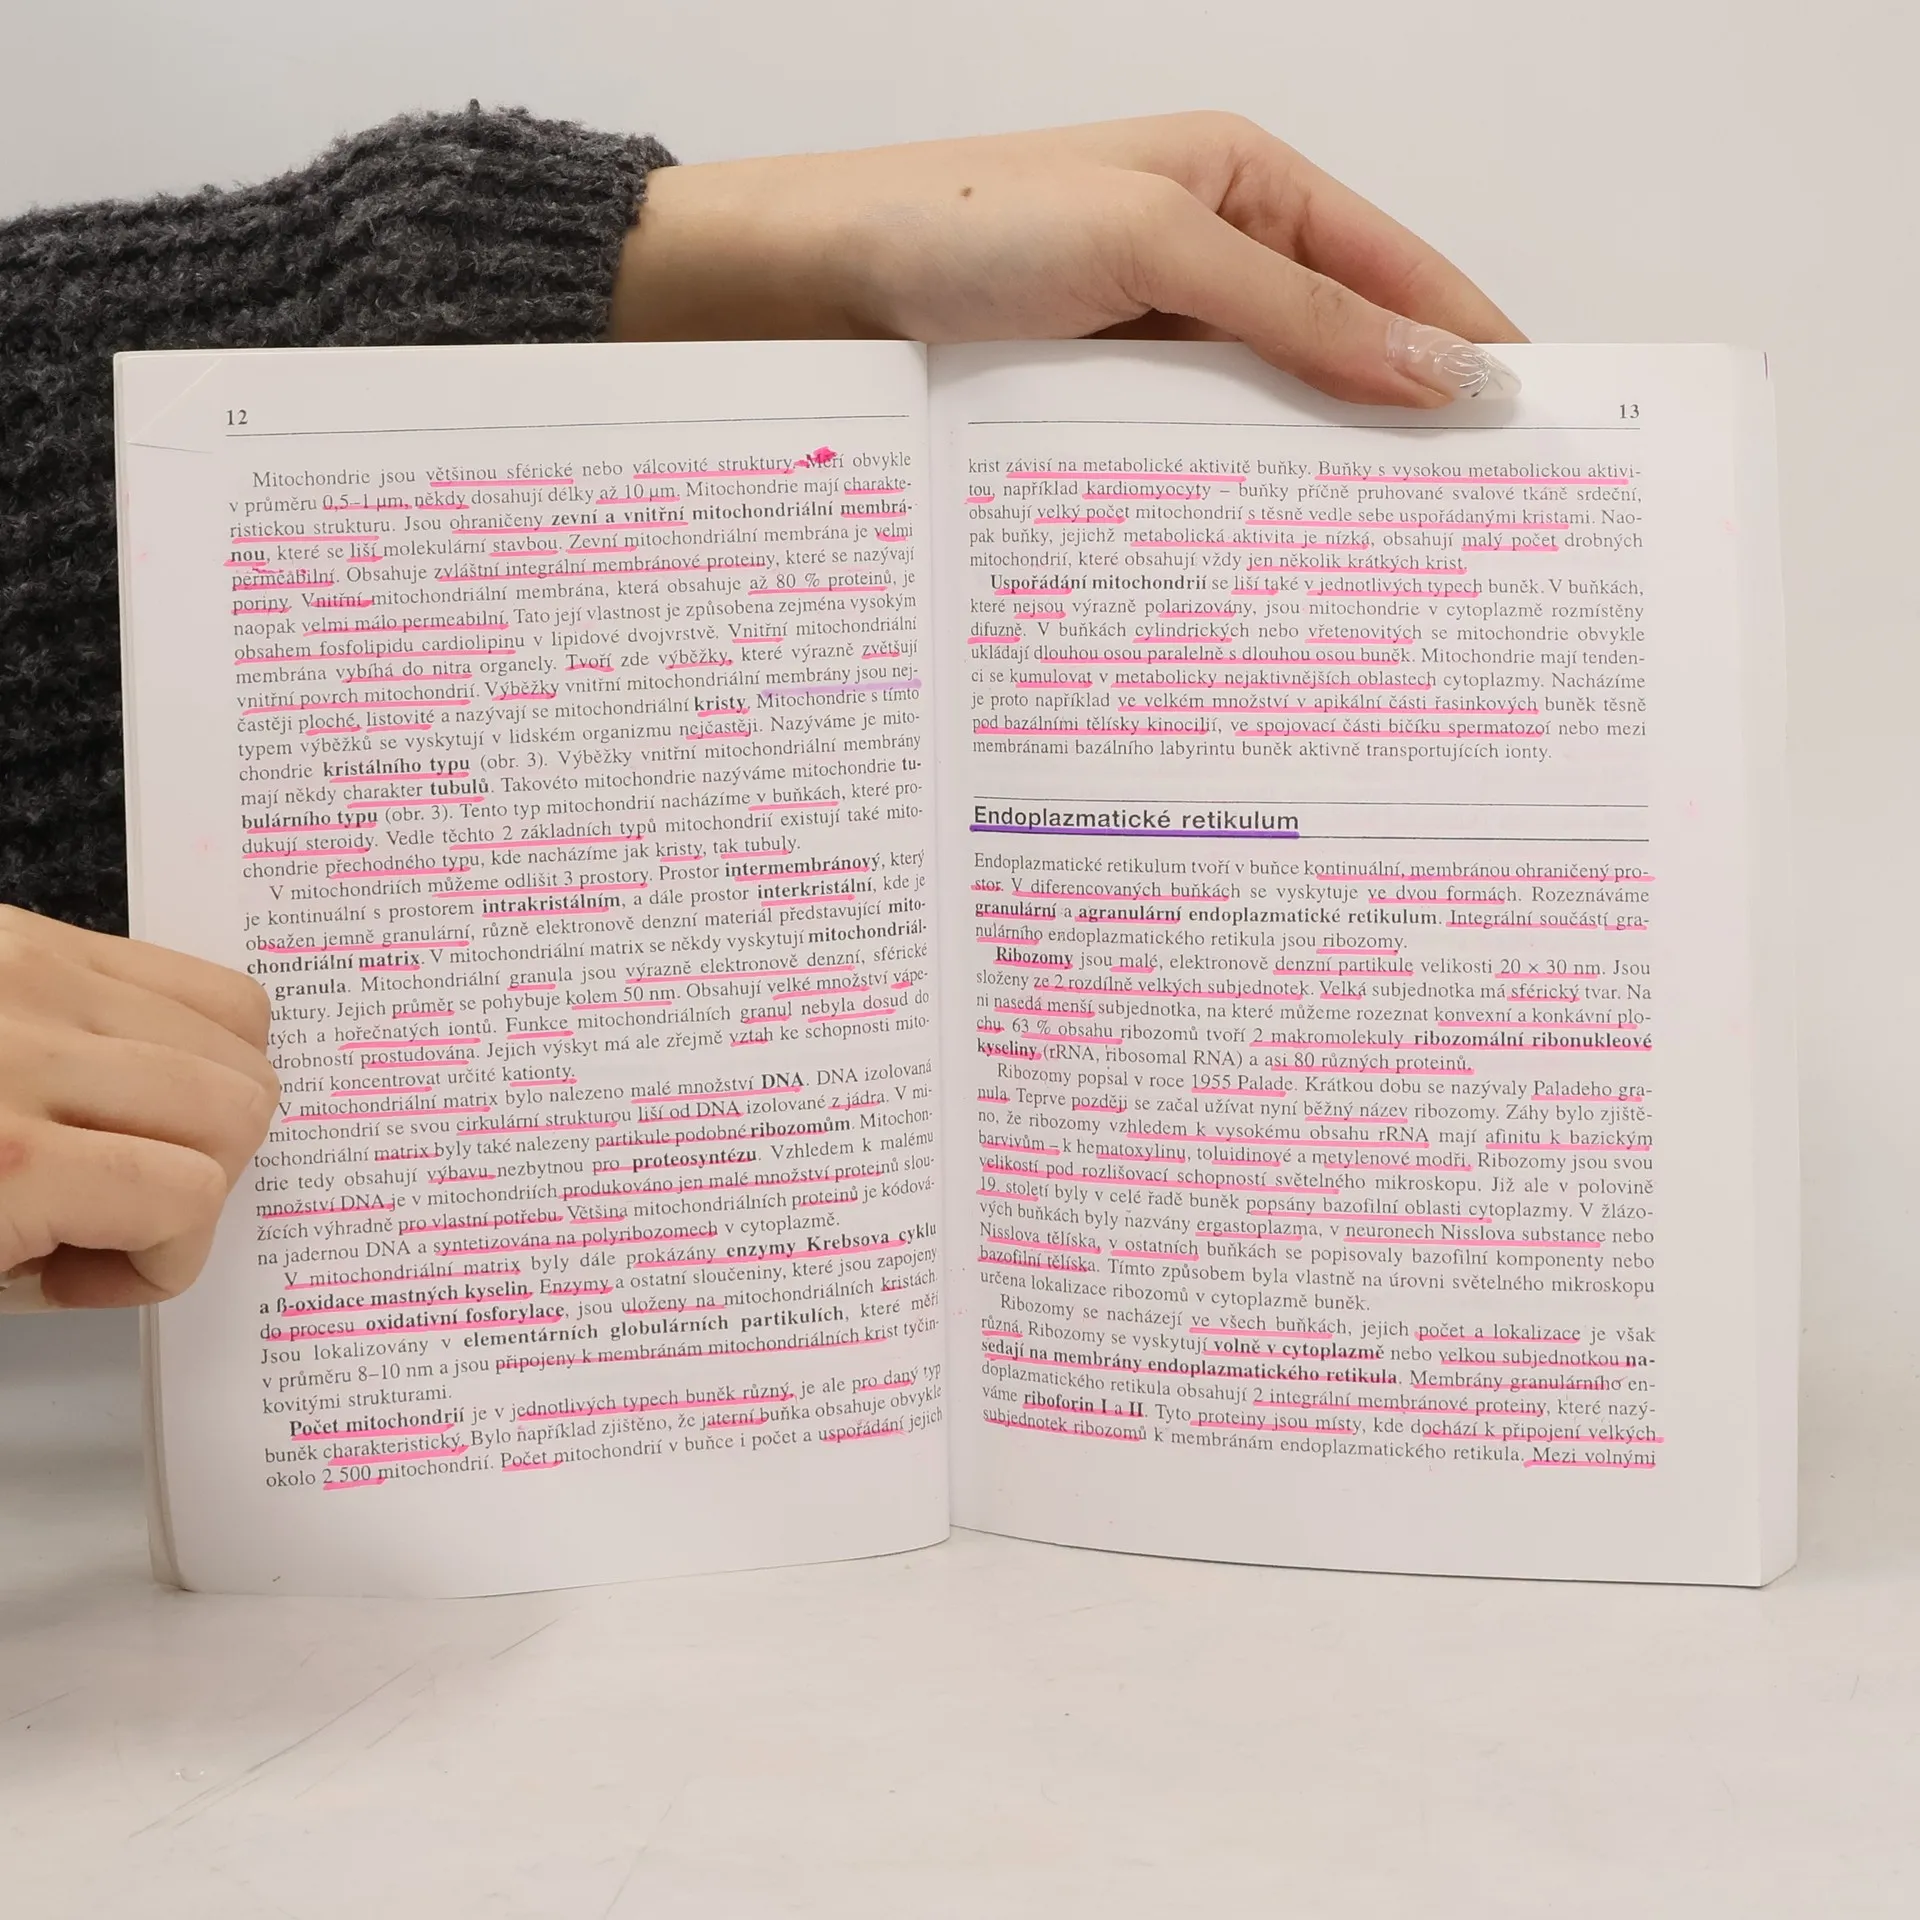 12
Mitochondrie jsou většinou sférické nebo válcovité struktury. Měří obvykle
v průměru 0,5–1 µm, někdy dosahují délky až 10 µm. Mitochondrie mají charakte-
ristickou strukturu. Jsou ohraničeny zevní a vnitřní mitochondriální membrá-
nou, které se liší molekulární stavbou. Zevní mitochondriální membrána je velmi
permeabilní. Obsahuje zvláštní integrální membránové proteiny, které se nazývají
poriny. Vnitřní mitochondriální membrána, která obsahuje až 80 % proteinů, je
naopak velmi málo permeabilní. Tato její vlastnost je způsobena zejména vysokým
obsahem fosfolipidu cardiolipinu v lipidové dvojvrstvě. Vnitřní mitochondriální
membrána vybíhá do nitra organely. Tvoří zde výběžky, které výrazně zvětšují
vnitřní povrch mitochondrií. Výběžky vnitřní mitochondriální membrány jsou nej-
častěji ploché, listovité a nazývají se mitochondriální kristy. Mitochondrie s tímto
typem výběžků se vyskytují v lidském organizmu nejčastěji. Nazýváme je mito-
chondrie kristálního typu (obr. 3). Výběžky vnitřní mitochondriální membrány
mají někdy charakter tubulů. Takovéto mitochondrie nazýváme mitochondrie tu-
bulárního typu (obr. 3). Tento typ mitochondrií nacházíme v buňkách, které pro-
dukují steroidy. Vedle těchto 2 základních typů mitochondrií existují také mito-
chondrie přechodného typu, kde nacházíme jak kristy, tak tubuly.
V mitochondriích můžeme odlišit 3 prostory. Prostor intermembránový, který
je kontinuální s prostorem intrakristálním, a dále prostor interkristální, kde je
obsažen jemně granulární, různě elektronově denzní materiál představující mito-
chondriální matrix. V mitochondriální matrix se někdy vyskytují mitochondriál-
granula. Mitochondriální granula jsou výrazně elektronově denzní, sférické
uktury. Jejich průměr se pohybuje kolem 50 nm. Obsahují velké množství vápe-
tých a hořečnatých iontů. Funkce mitochondriálních granul nebyla dosud do
drobností prostudována. Jejich výskyt má ale zřejmě vztah ke schopnosti mito-
ondrií koncentrovat určité kationty.
V mitochondriální matrix bylo nalezeno malé množství DNA. DNA izolovaná
mitochondrií se svou cirkulární strukturou liší od DNA izolované z jádra. V mi-
tochondriální matrix byly také nalezeny partikule podobné ribozomům. Mitochon-
drie tedy obsahují výbavu nezbytnou pro proteosyntézu. Vzhledem k malému
množství DNA je v mitochondriích produkováno jen malé množství proteinů slou-
žících výhradně pro vlastní potřebu. Většina mitochondriálních proteinů je kódová-
na jadernou DNA a syntetizována na polyribozomech v cytoplazmě.
V mitochondriální matrix byly dále prokázány enzymy Krebsova cyklu
a ß-oxidace mastných kyselin. Enzymy a ostatní sloučeniny, které jsou zapojeny
do procesu oxidativní fosforylace, jsou uloženy na mitochondriálních kristách.
Jsou lokalizovány v elementárních globulárních partikulích, které měří
v průměru 8–10 nm a jsou připojeny k membránám mitochondriálních krist tyčin-
kovitými strukturami.
Počet mitochondrií je v jednotlivých typech buněk různý, je ale pro daný typ
buněk charakteristický. Bylo například zjištěno, že jaterní buňka obsahuje obvykle
okolo 2 500 mitochondrií. Počet mitochondrií v buňce i počet a uspořádání jejich
13
krist závisí na metabolické aktivitě buňky. Buňky s vysokou metabolickou aktivi-
tou, například kardiomyocyty – buňky příčně pruhované svalové tkáně srdeční,
obsahují velký počet mitochondrií s těsně vedle sebe uspořádanými kristami. Nao-
pak buňky, jejichž metabolická aktivita je nízká, obsahují malý počet drobných
mitochondrií, které obsahují vždy jen několik krátkých krist.
Uspořádání mitochondrií se liší také v jednotlivých typech buněk. V buňkách,
které nejsou výrazně polarizovány, jsou mitochondrie v cytoplazmě rozmístěny
difuzně. V buňkách cylindrických nebo vřetenovitých se mitochondrie obvykle
ukládají dlouhou osou paralelně s dlouhou osou buněk. Mitochondrie mají tenden-
ci se kumulovat v metabolicky nejaktivnějších oblastech cytoplazmy. Nacházíme
je proto například ve velkém množství v apikální části řasinkových buněk těsně
pod bazálními tělísky kinocilií, ve spojovací části bičíku spermatozoí nebo mezi
membránami bazálního labyrintu buněk aktivně transportujících ionty.
Endoplazmatické retikulum
Endoplazmatické retikulum tvoří v buňce kontinuální, membránou ohraničený pro-
stor. V diferencovaných buňkách se vyskytuje ve dvou formách. Rozeznáváme
granulární a agranulární endoplazmatické retikulum. Integrální součástí gra-
nulárního endoplazmatického retikula jsou ribozomy.
Ribozomy jsou malé, elektronově denzní partikule velikosti 20 × 30 nm. Jsou
složeny ze 2 rozdílně velkých subjednotek. Velká subjednotka má sférický tvar. Na
ni nasedá menší subjednotka, na které můžeme rozeznat konvexní a konkávní plo-
chu. 63 % obsahu ribozomů tvoří 2 makromolekuly ribozomální ribonukleové
kyseliny (rRNA, ribosomal RNA) a asi 80 různých proteinů.
Ribozomy popsal v roce 1955 Palade. Krátkou dobu se nazývaly Paladeho gra-
nula. Teprve později se začal užívat nyní běžný název ribozomy. Záhy bylo zjiště-
no, že ribozomy vzhledem k vysokému obsahu rRNA mají afinitu k bazickým
barvivům – k hematoxylinu, toluidinové a metylenové modři. Ribozomy jsou svou
velikostí pod rozlišovací schopností světelného mikroskopu. Již ale v polovině
19. století byly v celé řadě buněk popsány bazofilní oblasti cytoplazmy. V žlázo-
vých buňkách byly nazvány ergastoplazma, v neuronech Nisslova substance nebo
Nisslova tělíska, v ostatních buňkách se popisovaly bazofilní komponenty nebo
bazofilní tělíska. Tímto způsobem byla vlastně na úrovni světelného mikroskopu
určena lokalizace ribozomů v cytoplazmě buněk.
Ribozomy se nacházejí ve všech buňkách, jejich počet a lokalizace je však
různá. Ribozomy se vyskytují volně v cytoplazmě nebo velkou subjednotkou na-
sedají na membrány endoplazmatického retikula. Membrány granulárního en-
doplazmatického retikula obsahují 2 integrální membránové proteiny, které nazý-
váme riboforin I a II. Tyto proteiny jsou místy, kde dochází k připojení velkých
subjednotek ribozomů k membránám endoplazmatického retikula. Mezi volnými